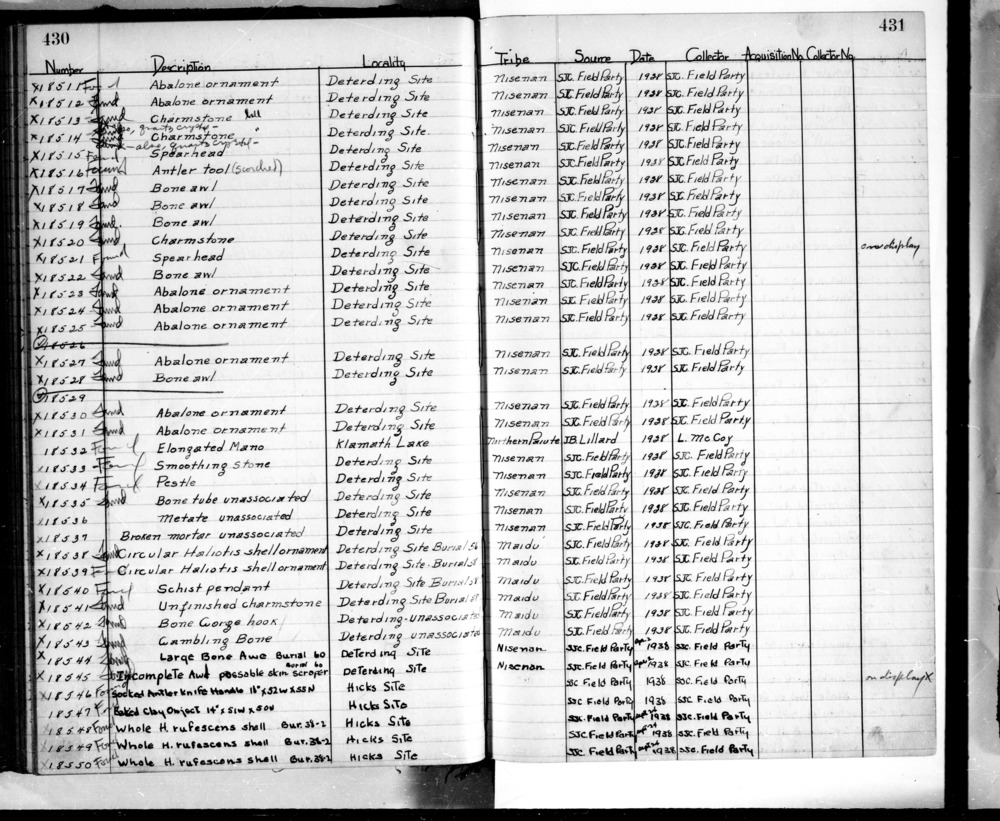 430
431
Number Description Locality Tribe Source Date Collector Acquisition No. Collector No.
X18511 Found Abalone ornament Deterding Site Nisenan SJC. Field Party 1938 SJC. Field Party
X18512 Found Abalone ornament Deterding Site Nisenan SJC. Field Party 1938 SJC. Field Party
X18513 Found Charmstone Deterding Site Nisenan SJC. Field Party 1938 SJC. Field Party
also, quartz crystal-
X18514 Charmstone " Deterding Site. Nisenan SJC. Field Party 1938 SJC. Field Party
Found - also, quartz crystal-
X18515 Found Spearhead Deterding Site Nisenan SJC. Field Party 1938 SJC. Field Party
X18516 Found Antler tool (scorched) Deterding Site Nisenan SJC. Field Party 1938 SJC. Field Party
X18517 Found Bone awl Deterding Site Nisenan SJC. Field Party 1938 SJC. Field Party
X18518 Found Bone awl Deterding Site Nisenan SJC. Field Party 1938 SJC. Field Party
X18519 Found. Bone awl Deterding Site Nisenan SJC. Field Party 1938 SJC. Field Party
X18520 Found Charmstone Deterding Site Nisenan SJC. Field Party 1938 SJC. Field Party
X18521 Found Spearhead Deterding Site Nisenan SJC. Field Party 1938 SJC. Field Party on display
X18522 Found Bone awl Deterding Site Nisenan SJC. Field Party 1938 SJC. Field Party
X18523 Found Abalone ornament Deterding Site Nisenan SJC. Field Party 1938 SJC. Field Party
X18524 Found Abalone ornament Deterding Site Nisenan SJC. Field Party 1938 SJC. Field Party
X18525 Found Abalone ornament Deterding Site Nisenan SJC. Field Party 1938 SJC. Field Party
18526
X18527 Found Abalone ornament Deterding Site Nisenan SJC. Field Party 1938 SJC. Field Party
X18528 Found Bone awl Deterding Site Nisenan SJC. Field Party 1938 SJC. Field Party
18529
X18530 Found Abalone ornament Deterding Site Nisenan SJC. Field Party 1938 SJC. Field Party
X18531 Found Abalone ornament Deterding Site Nisenan SJC. Field Party 1938 SJC. Field Party
18532 Found Elongated Mano Klamath Lake Northern Paiute J.B. Lillard 1938 L. McCoy
18533 Found Smoothing stone Deterding Site Nisenan SJC. Field Party 1938 SJC. Field Party
X18534 Found Pestle Deterding Site Nisenan SJC. Field Party 1938 SJC. Field Party
X18535 Found Bone tube unassociated Deterding Site Nisenan SJC. Field Party 1938 SJC. Field Party
18536 Metate unassociated Deterding Site Nisenan SJC. Field Party 1938 SJC. Field Party
18537 Broken mortar unassociated Deterding Site Nisenan SJC. Field Party 1938 SJC. Field Party
X18538 Found Circular Haliotis shell ornament Deterding Site Burial Maidu SJC. Field Party 1938 SJC. Field Party
X18539 Circular Haliotis shell ornament Deterding Site-Burial Maidu SJC. Field Party 1938 SJC. Field Party
X18540 Found Schist pendant Deterding Site Burial Maidu SJC. Field Party 1938 SJC. Field Party
X18541 Found Unfinished charmstone Deterding Site Burial Maidu SJC. Field Party 1938 SJC. Field Party
X18542 Found Bone Gorge hook Deterding-unassociated Maidu SJC. Field Party 1938 SJC. Field Party
X18543 Found Gambling Bone Deterding unassociated Maidu SJC. Field Party 1938 SJC. Field Party
X18544 Found Large Bone Awl Burial 60 Deterding Site Nisenan SJC. Field Party Apr. 2 1938 SJC. Field Party
X18545 Incomplete Awl possable skin scraper Burial 60 Deterding Site Nisenan SJC. Field Party Apr. 2 1938 SJC. Field Party
X18546 Found Socked Antler knife Handle 18" x 52W x 55N Hicks Site SJC Field Party 1938 SJC. Field Party on display X
18547 Baked Clay Object 14" x 51W x 50N Hicks Site SJC Field Party 1938 SJC Field Party
18548 Found Whole H. rufescens shell Bur. 38-2 Hicks Site SJC. Field Party 1938 SJC. Field Party
18549 Found Whole H. rufescens shell Bur. 38-2 Hicks Site SJC. Field Party 1938 SJC. Field Party
X18550 Found Whole H. rufescens shell Bur. 38-2 Hicks Site SJC. Field Party 1938 SJC. Field Party